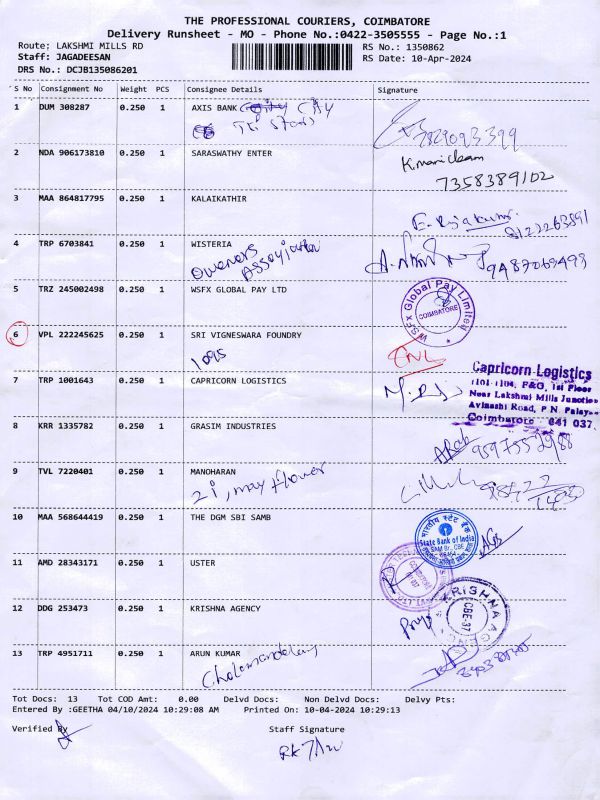 THE PROFESSIONAL COURIERS, COIMBATORE
Delivery Runsheet - MO - Phone No.:0422-3505555 - Page No.:1
Route: LAKSHMI MILLS RD RS No.: 1350862
Staff: JAGADEESAN RS Date: 10-Apr-2024
DRS No.: DCJB135086201
S No Consignment No Weight PCS Consignee Details Signature
1 DUM 308287 0.250 1 AXIS BANK
7829093399
2 NDA 906173810 0.250 1 SARASWATHY ENTER K.manickam
7358389102
3 MAA 864817795 0.250 1 KALAIKATHIR
8122263891
4 TRP 6703841 0.250 1 WISTERIA
Owners 9487069499
5 TRZ 245002498 0.250 1 WSFX GLOBAL PAY LTD WSFx Global Pay Limited
COIMBATORE
6 VPL 222245625 0.250 1 SRI VIGNESWARA FOUNDRY
1095
7 TRP 1001643 0.250 1 CAPRICORN LOGISTICS
Capricorn Logistics
1101-1104, F&G, 1st Floor
Near Lakshmi Mills Junction
Avinashi Road, P N Palay
Coimbatore 641 037
8 KRR 1335782 0.250 1 GRASIM INDUSTRIES
9 TVL 7220401 0.250 1 MANOHARAN
2i, may flower
10 MAA 568644419 0.250 1 THE DGM SBI SAMB
भारतीय स्टेट बैंक
State Bank of India
11 AMD 28343171 0.250 1 USTER
12 DDG 253473 0.250 1 KRISHNA AGENCY KRISHNA AGENC
CBE-37
13 TRP 4951711 0.250 1 ARUN KUMAR
Tot Docs: 13 Tot COD Amt: 0.00 Delvd Docs: Non Delvd Docs: Delvy Pts:
Entered By :GEETHA 04/10/2024 10:29:08 AM Printed On: 10-04-2024 10:29:13
Verified By Staff Signature